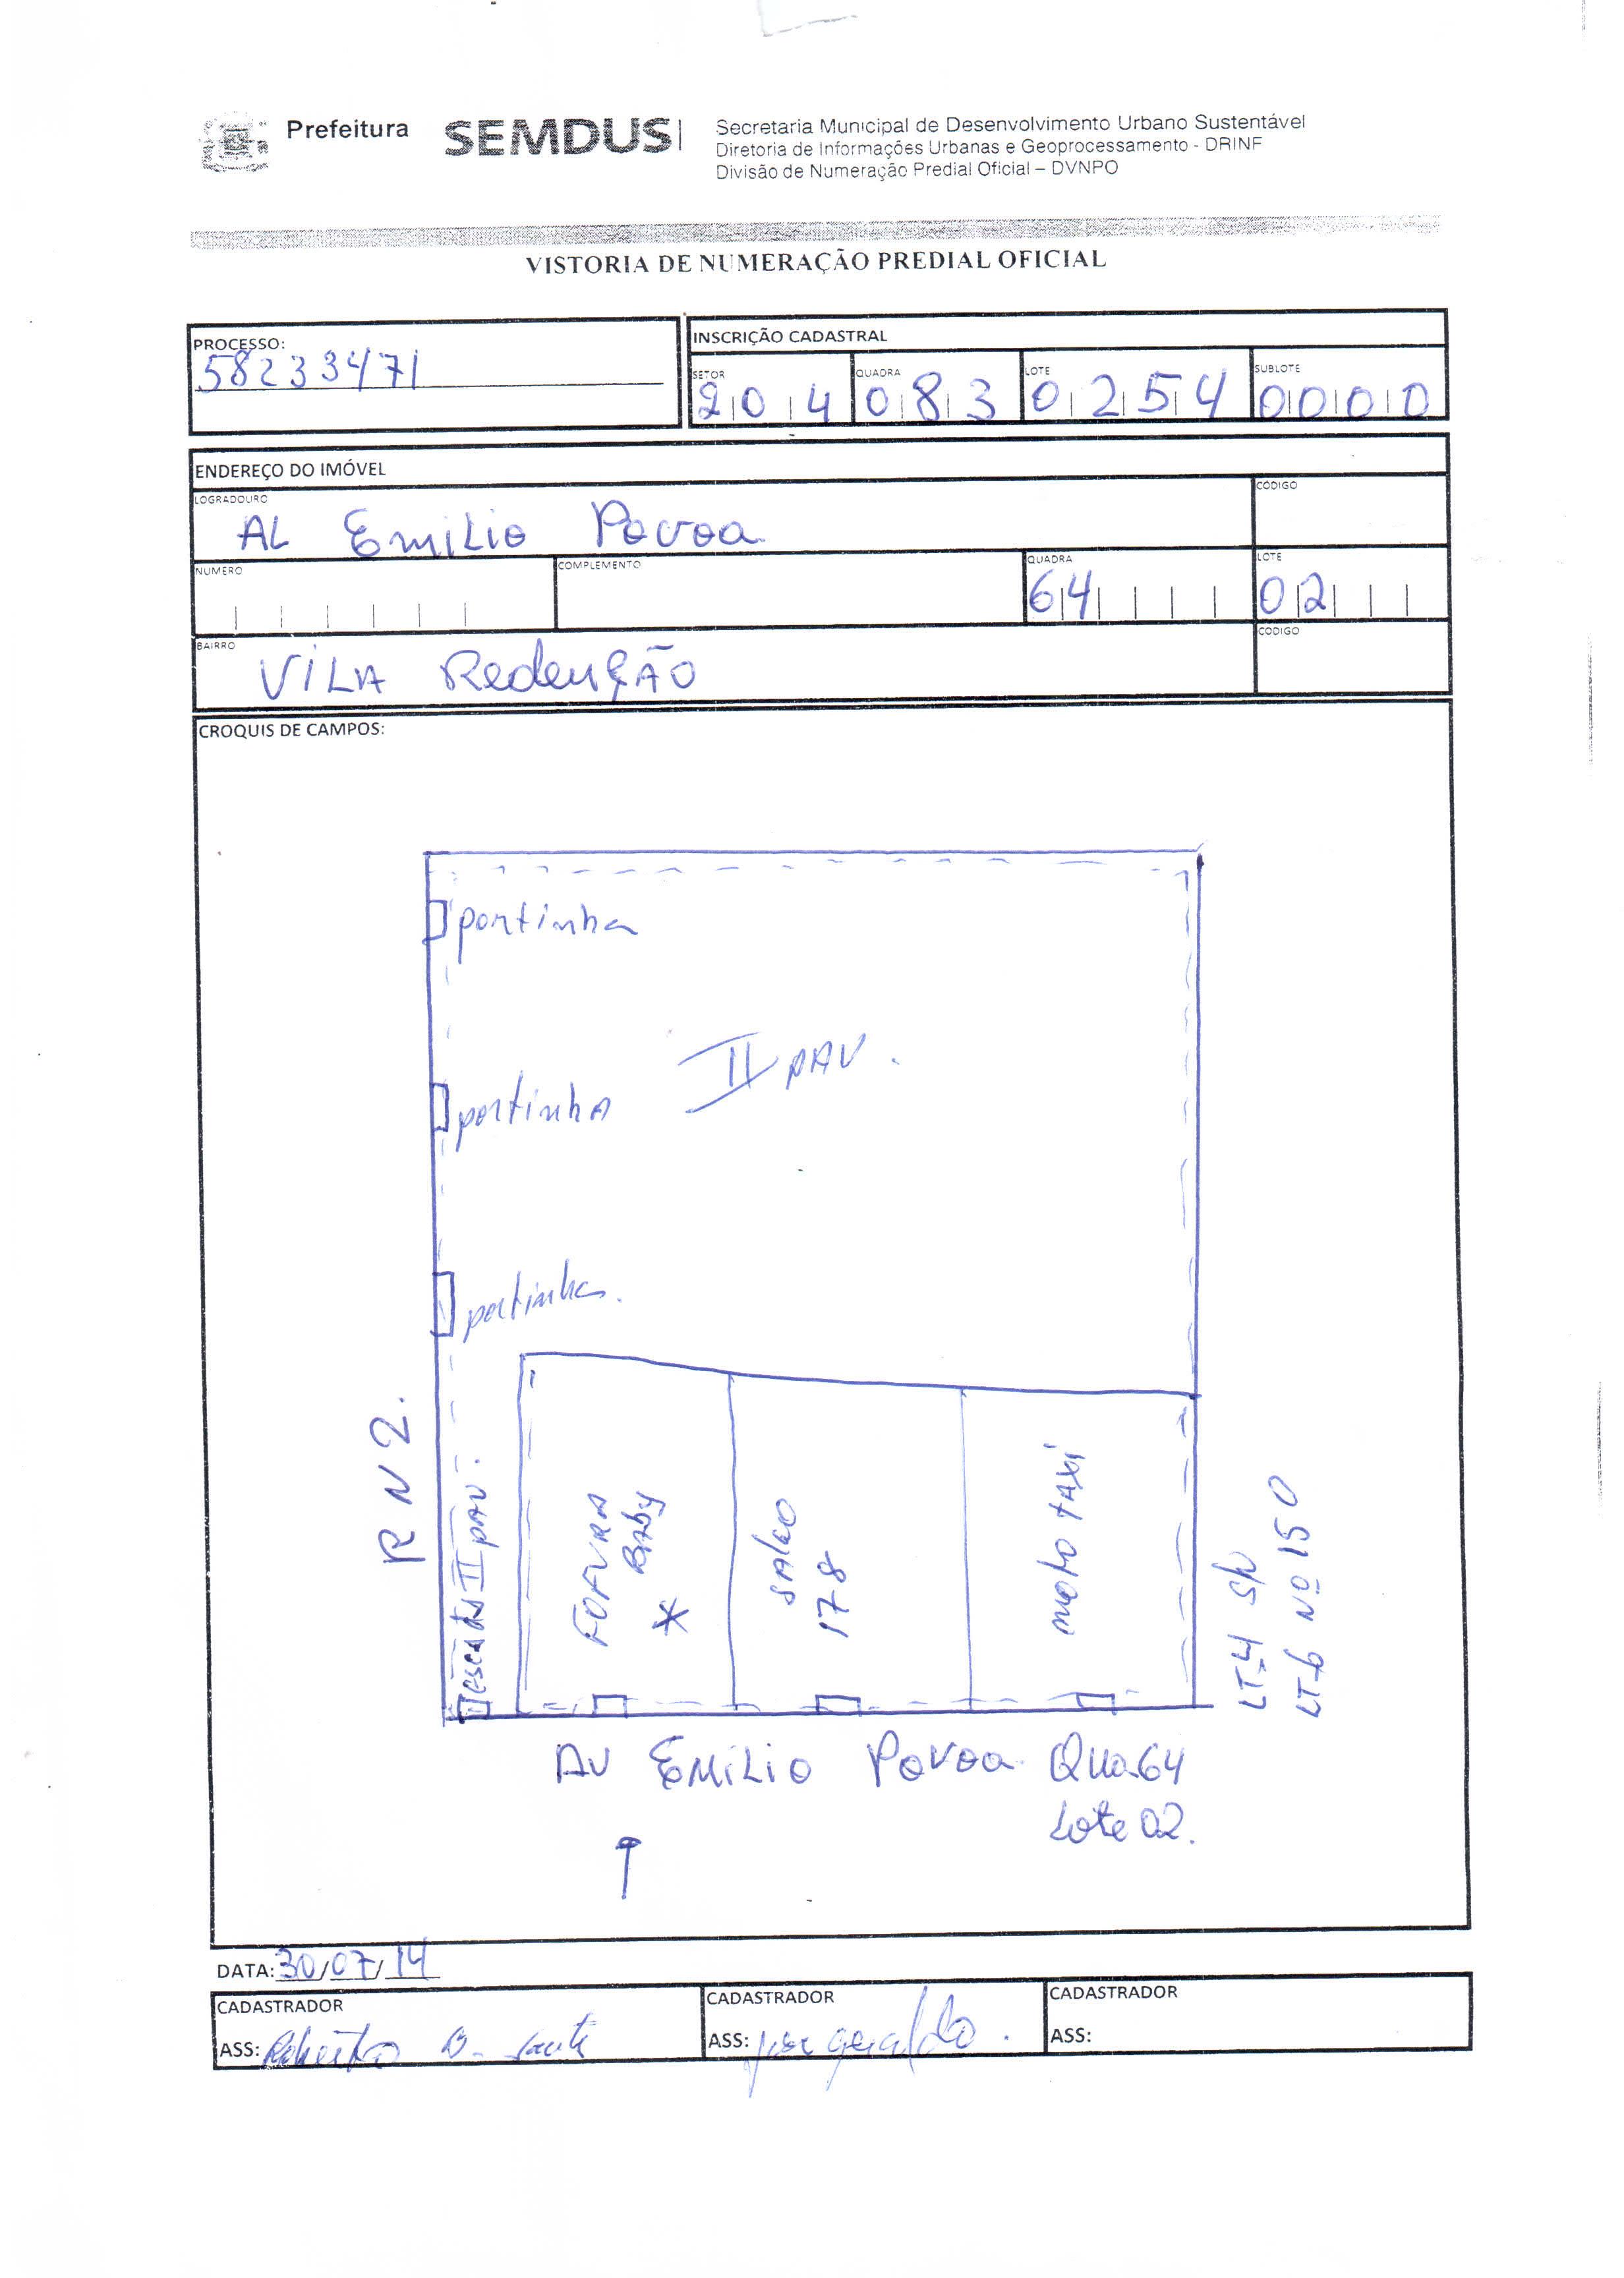 Prefeitura SEMDUS
Secretaria Municipal de Desenvolvimento Urbano Sustentável
Diretoria de Informações Urbanas e Geoprocessamento - DRINF
Divisão de Numeração Predial Oficial – DVNPO
VISTORIA DE NUMERAÇÃO PREDIAL OFICIAL
PROCESSO:
58233471
INSCRIÇÃO CADASTRAL
SETOR QUADRA LOTE SUBLOTE
204 083 0254 0000
ENDEREÇO DO IMÓVEL
LOGRADOURO CÓDIGO
AL Emilio Povoa
NUMERO COMPLEMENTO QUADRA LOTE
64 02
BAIRRO CÓDIGO
VILA Redenção
CROQUIS DE CAMPOS:
portinha
II PAV.
portinha
portinha.
R N 2.
escadas II PAV.
FOFURA
Baby
*
salão
178
moto taxi
LT-4 S/N
LT-6 Nº 150
AV Emilio Povoa Qua64
Lote 02.
DATA: 30/07/14
CADASTRADOR CADASTRADOR CADASTRADOR
ASS: ASS: ASS: